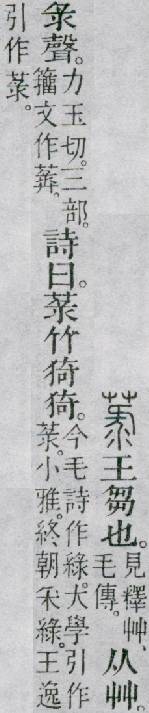 菉王芻也。見釋艸、毛傳。从艸。
彔聲。力玉切。三部。籒文作、詩曰。菉竹猗猗。今毛詩作綠。大學引作菉。小雅。終朝采綠。王逸
引作菉。